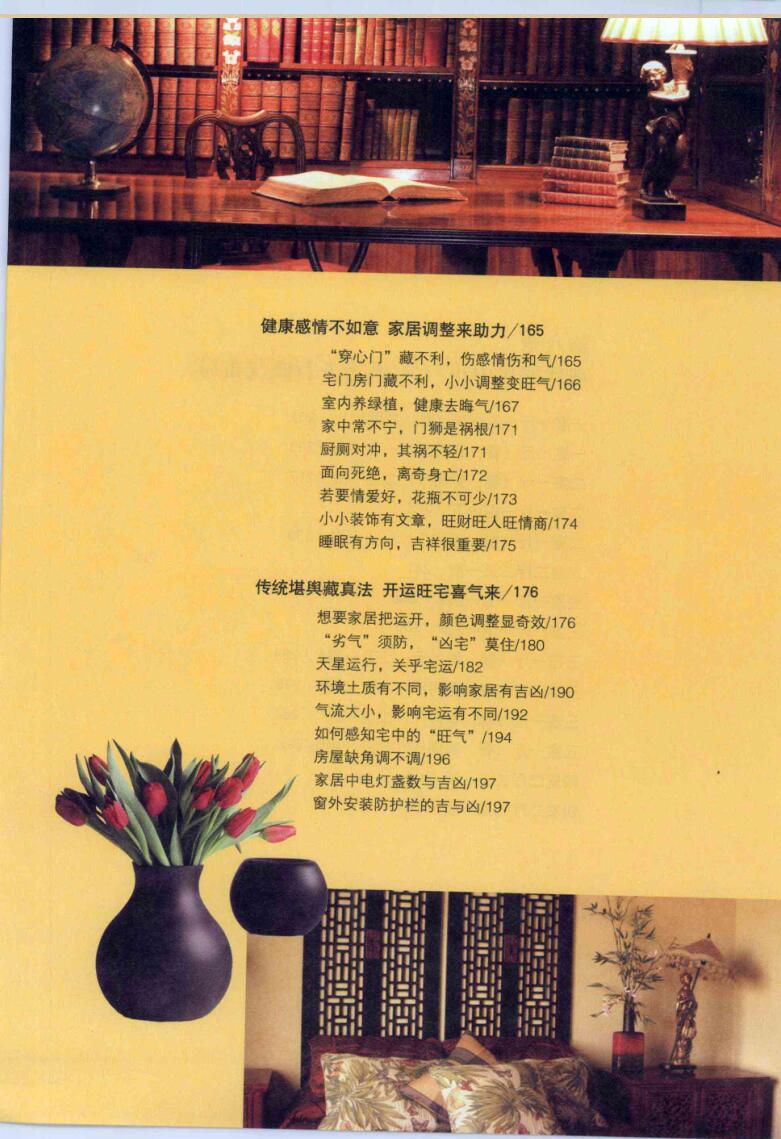 健康感情不如意 家居调整来助力/165
“穿心门”藏不利，伤感情伤和气/165
宅门房门藏不利，小小调整变旺气/166
室内养绿植，健康去晦气/167
家中常不宁，门狮是祸根/171
厨厕对冲，其祸不轻/171
面向死绝，离奇身亡/172
若要情爱好，花瓶不可少/173
小小装饰有文章，旺财旺人旺情商/174
睡眠有方向，吉祥很重要/175
传统堪舆藏真法 开运旺宅喜气来/176
想要家居把运开，颜色调整显奇效/176
“劣气”须防，“凶宅”莫住/180
天星运行，关乎宅运/182
环境土质有不同，影响家居有吉凶/190
气流大小，影响宅运有不同/192
如何感知宅中的“旺气”/194
房屋缺角调不调/196
家居中电灯盏数与吉凶/197
窗外安装防护栏的吉与凶/197